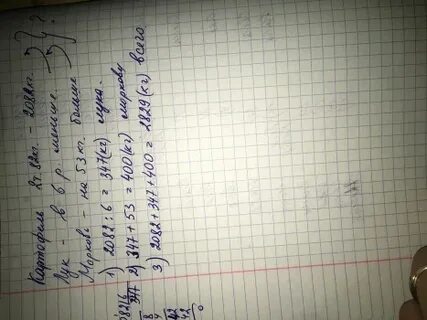 Картофель 2т. 82кг. - 2082кг. ?
Лук - в 6 р. меньше.
Морковь - на 53 кг. больше
1) 2082 : 6 = 347(кг) лука.
2) 347 + 53 = 400(кг) моркови
3) 2082 + 347 + 400 = 2829(кг) всего.
347
42
42
0